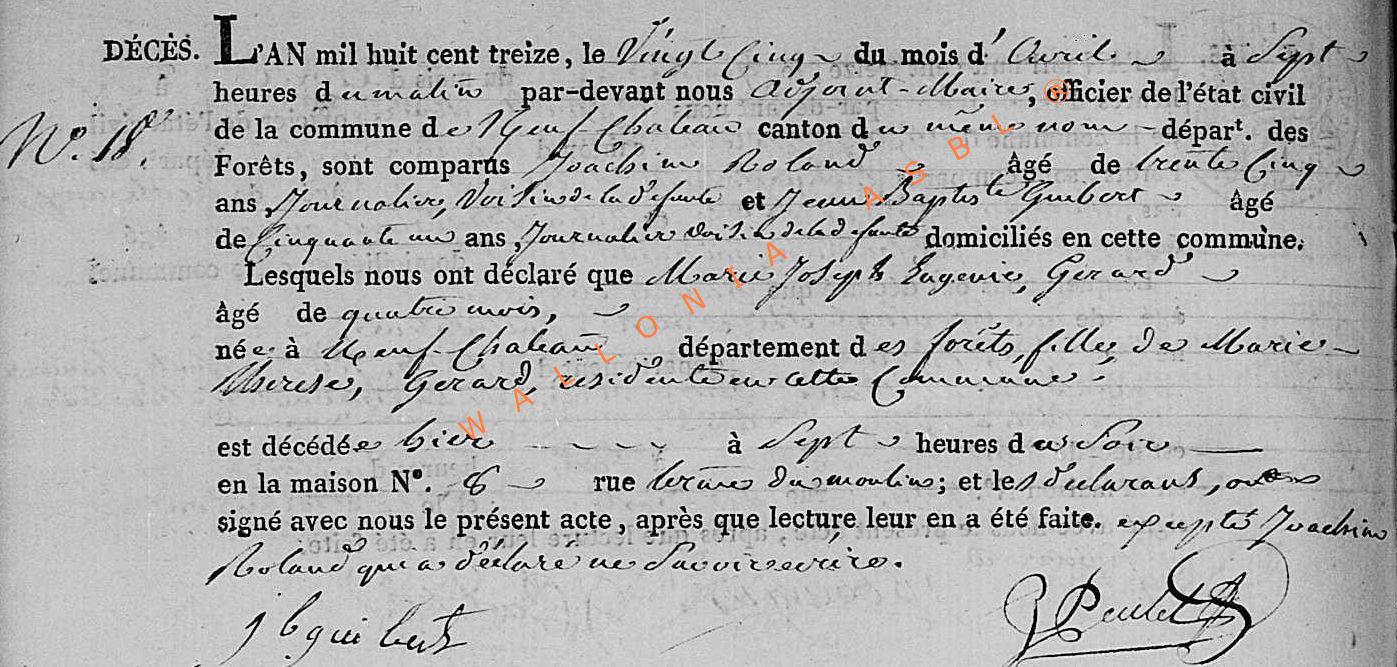 DÉCÈS. L'AN mil huit cent treize, le Vingt Cinq du mois d'Avril à Sept
heures du matin par-devant nous Adjoint-Maire, officier de l'état civil
N°. 18.
de la commune de Neuf-Chateau canton du même nom départ. des
Forêts, sont comparus Joachim Roland âgé de trente Cinq
ans, Journalier, Voisin de la défunte et Jean Baptiste Guibert âgé
de Cinquante un ans, Journalier voisin de la défunte domiciliés en cette commune.
Lesquels nous ont déclaré que Marie Joseph Eugenie, Gerard
âgé de quatre mois,
née à Neuf-Chateau département des forêts, fille de Marie
Therese, Gerard, résidente en cette Commune.
est décédée hier à Sept heures du Soir
en la maison N°. 8 rue du moulin; et les déclarants, ont
signé avec nous le présent acte, après que lecture leur en a été faite. excepté Joachim
Roland qui a déclaré ne Savoir écrire.
j b guibert
WALLONIA ASBL ©